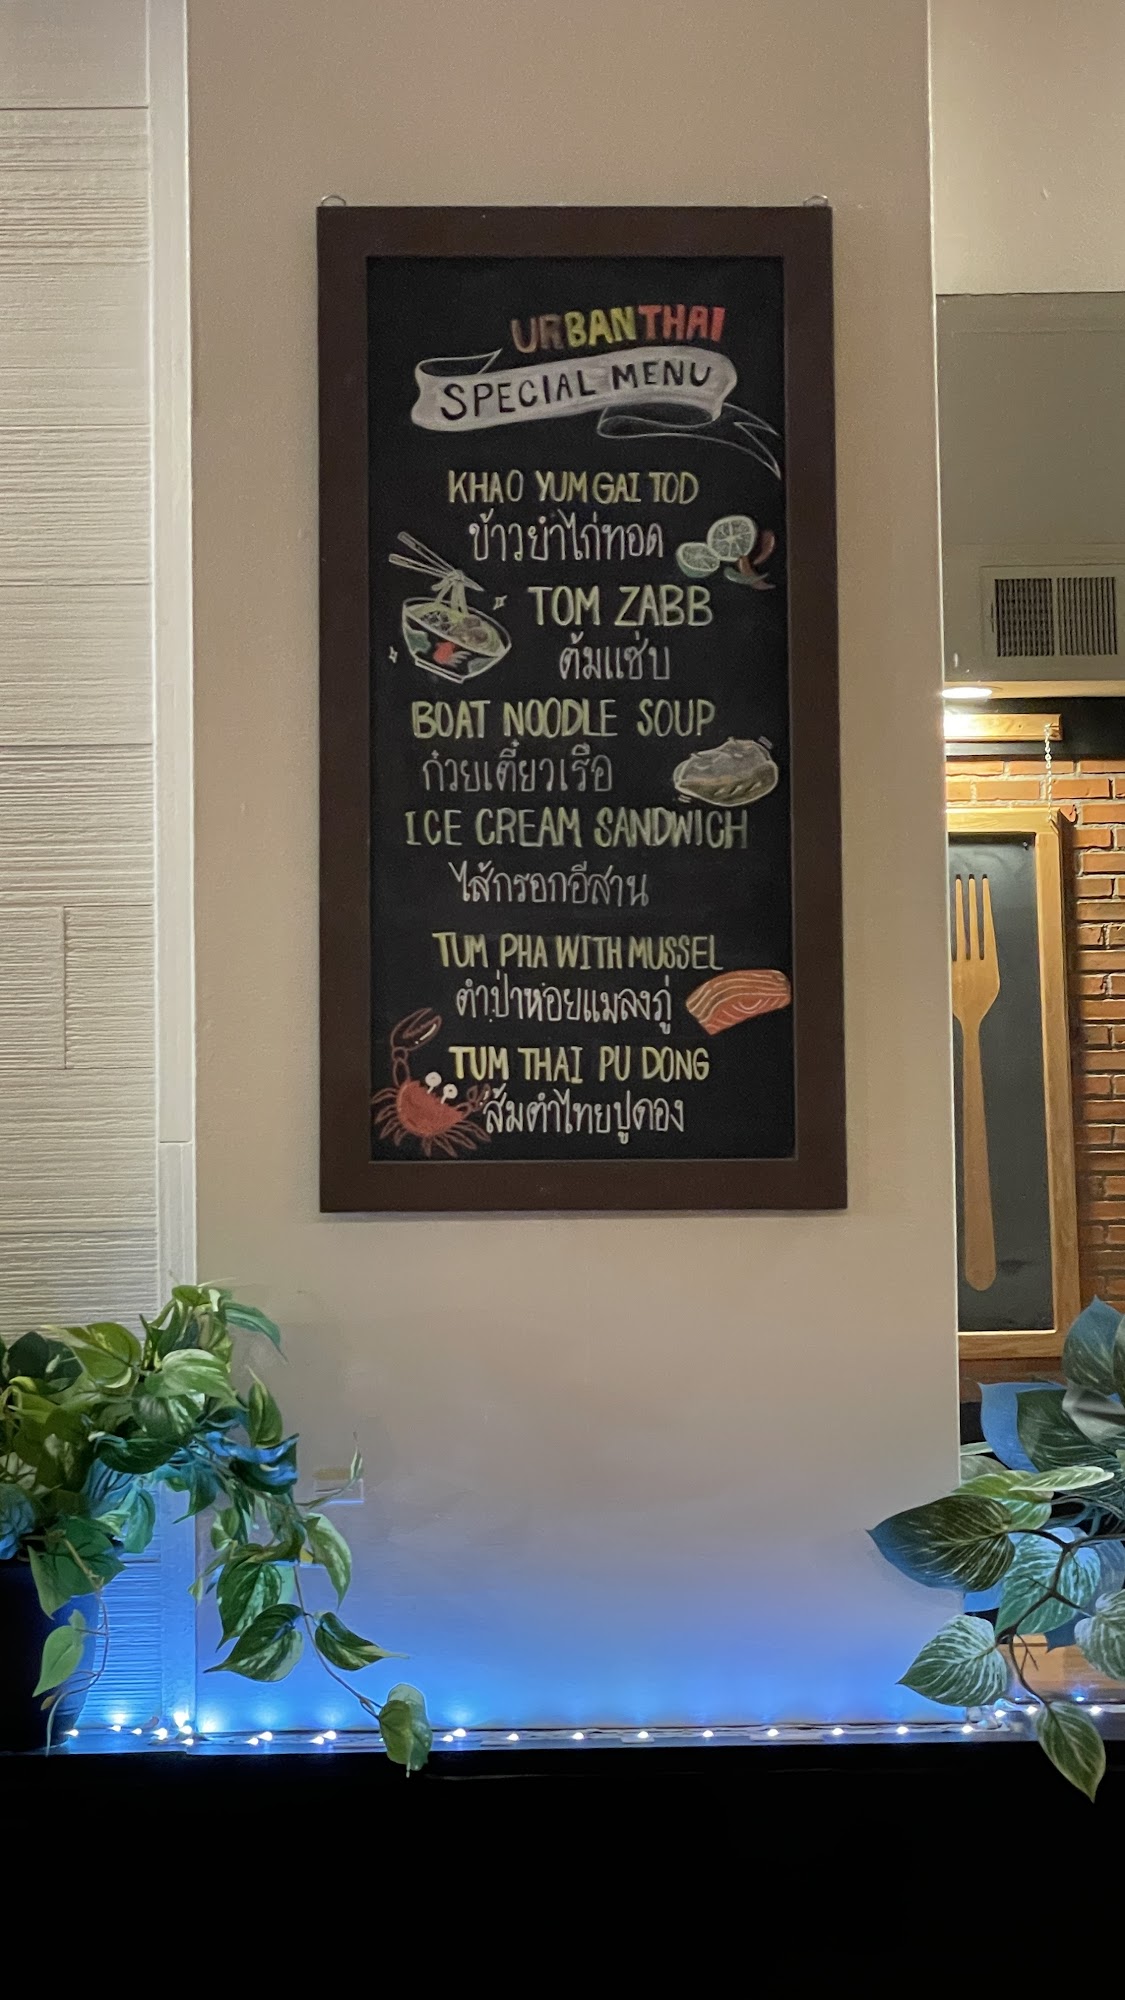 URBANTHAI
SPECIAL MENU
KHAO YUM GAI TOD
ข้าวยำไก่ทอด
TOM ZABB
ต้มแซ่บ
BOAT NOODLE SOUP
ก๋วยเตี๋ยวเรือ
ICE CREAM SANDWICH
ไส้กรอกอีสาน
TUM PHA WITH MUSSEL
ตำป่าหอยแมลงภู่
TUM THAI PU DONG
ส้มตำไทยปูดอง